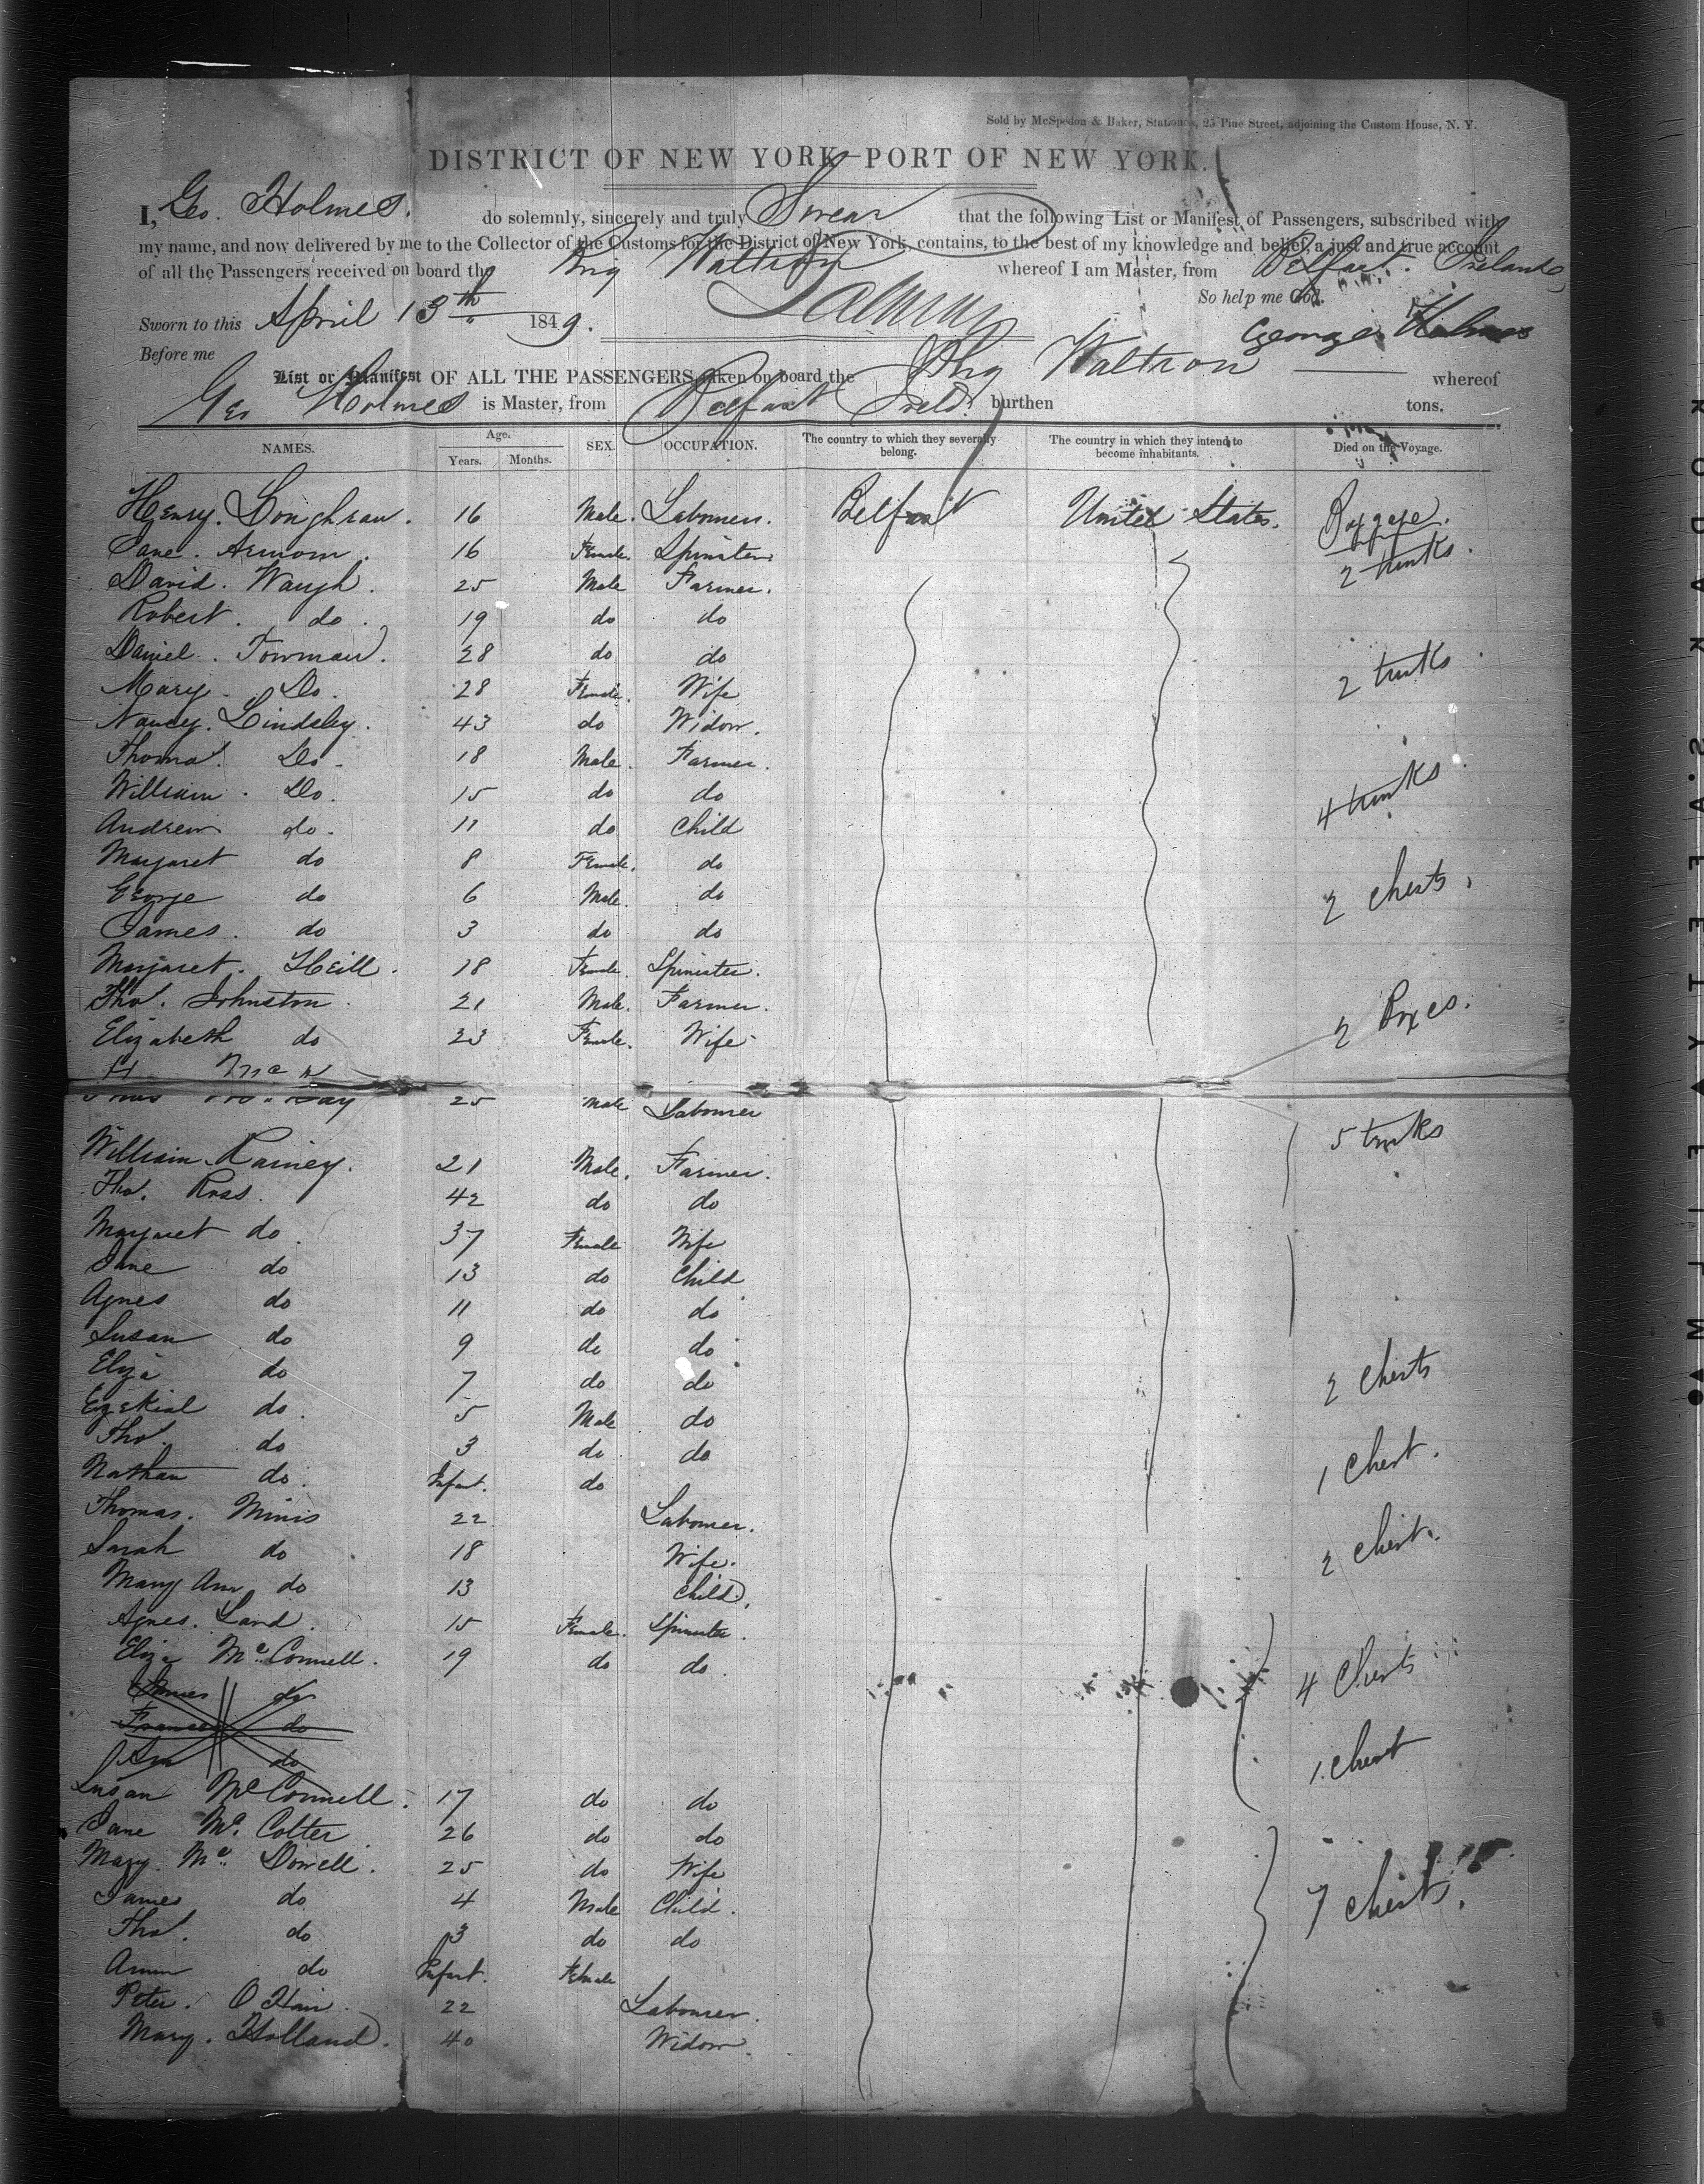 Sold by McSpedon & Baker, Stationers, 25 Pine Street, adjoining the Custom House, N. Y.
DISTRICT OF NEW YORK—PORT OF NEW YORK.
I, Geo. Holmes. do solemnly, sincerely and truly Swear that the following List or Manifest of Passengers, subscribed with
my name, and now delivered by me to the Collector of the Customs for the District of New York, contains, to the best of my knowledge and belief, a just and true account
of all the Passengers received on board the Brig Waltron whereof I am Master, from Belfast. Ireland
So help me God.
Sworn to this April 13th 1849. George Holmes
Before me
List or Manifest OF ALL THE PASSENGERS taken on board the Brig Waltron whereof
Geo Holmes is Master, from Belfast Ireld. burthen tons.
NAMES. Age. Years. Months. SEX. OCCUPATION. The country to which they severally belong. The country in which they intend to become inhabitants. Died on the Voyage.
Henry. Loughran. 16 Male. Labourer. Belfast United States. Baggage.
Jane. 16 Female. Spinster. 2 trunks.
David. Waugh. 25 Male Farmer.
Robert. do. 19 do do
Daniel. Towman. 28 do do 2 trunks
Mary. Do. 28 Female. Wife
Nancy. Lindsley. 43 do Widow.
Thomas. Do. 18 Male. Farmer.
William. Do. 15 do do 4 trunks
Andrew do. 11 do Child
Margaret do 8 Female. do
George do 6 Male. do 2 Chests.
James. do 3 do do
Margaret. Heill. 18 Female. Spinster.
Thos. Johnston. 21 Male. Farmer.
Elizabeth do 23 Female. Wife 2 Boxes.
25 Male Labourer 5 trunks
William Rainey. 21 Male. Farmer.
Thos. Ross. 42 do do
Margaret do. 37 Female Wife
Jane do 13 do Child
Agnes do 11 do do
Susan do 9 do do
Eliza do 7 do do 2 Chests
Ezekial do. 5 Male do
Thos. do 3 do do 1 Chest.
Nathan do. Infant. do
Thomas. Minis 22 Labourer.
Sarah do 18 Wife. 2 Chest.
Mary Ann do 13 Child.
Agnes. Land. 15 Female. Spinster.
Eliza McConnell. 19 do do. 4 Chests
James do
Frances do
Ann do 1 Chest
Susan McConnell. 17 do do
Jane Mc. Colter 26 do do
Mary. Mc. Dowell. 25 do Wife
James do 4 Male Child. 7 Chests.
Thos. do 3 do do
do Infant. Female
Peter. O Hair. 22 Labourer.
Mary. Holland. 40 Widow.